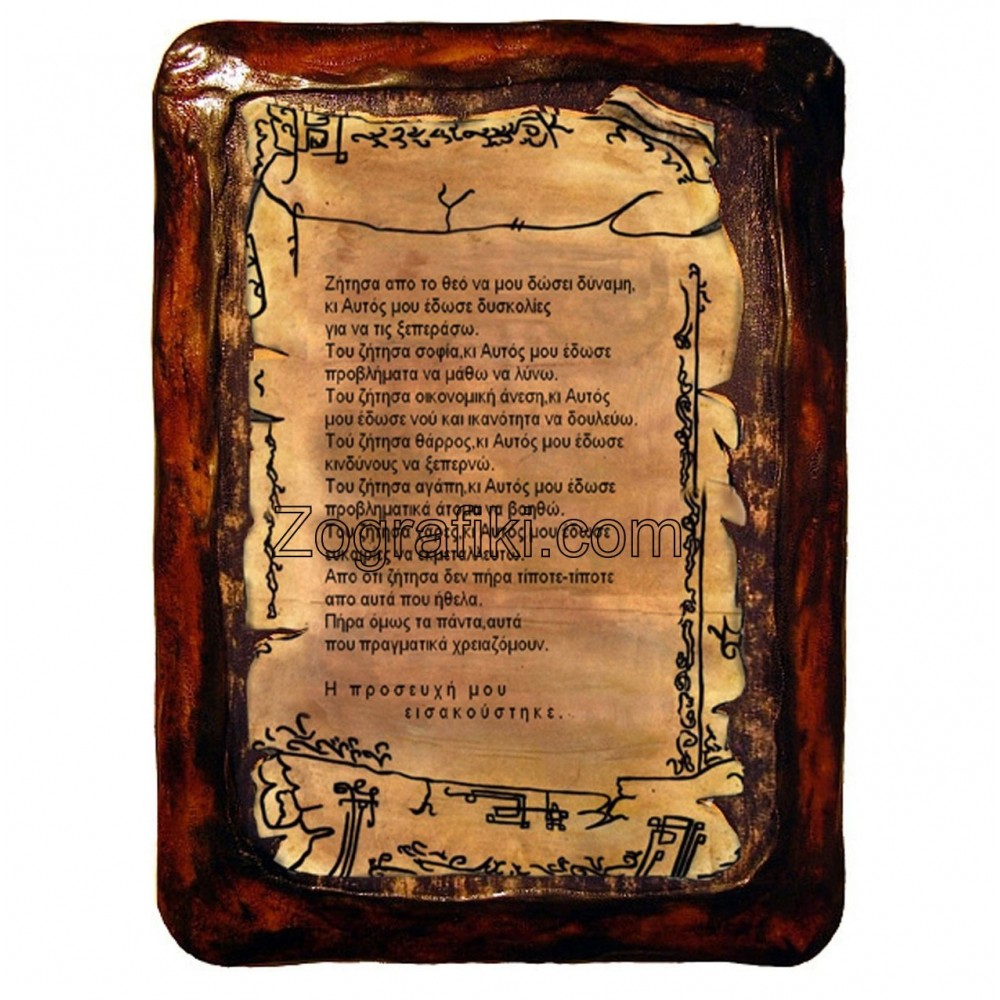 Ζήτησα απο το θεό να μου δώσει δύναμη,
κι Αυτός μου έδωσε δυσκολίες
για να τις ξεπεράσω.
Του ζήτησα σοφία,κι Αυτός μου έδωσε
προβλήματα να μάθω να λύνω.
Του ζήτησα οικονομική άνεση,κι Αυτός
μου έδωσε νού και ικανότητα να δουλεύω.
Τού ζήτησα θάρρος,κι Αυτός μου έδωσε
κινδύνους να ξεπερνώ.
Του ζήτησα αγάπη,κι Αυτός μου έδωσε
προβληματικά άτομα να βοηθώ.
Zografiki.com
Του ζήτησα χάρες,κι Αυτός μου έδωσε
ευκαιρίες να εκμεταλλευτώ.
Απο ότι ζήτησα δεν πήρα τίποτε-τίποτε
απο αυτά που ήθελα.
Πήρα όμως τα πάντα,αυτά
που πραγματικά χρειαζόμουν.
Η προσευχή μου
εισακούστηκε.